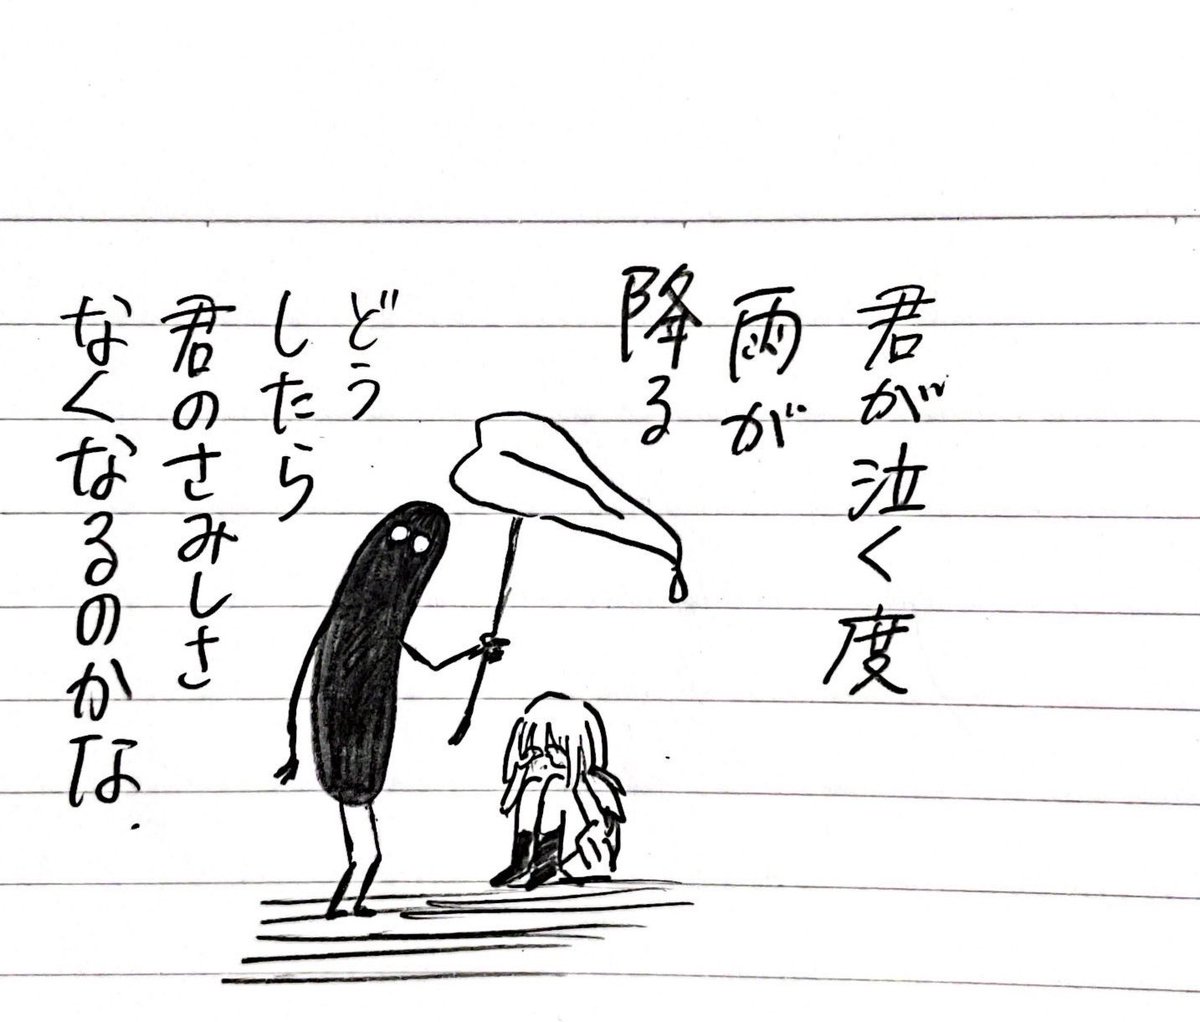 君が泣く度
雨が
降る
どう
したら
君のさみしさ
なくなるのかな.